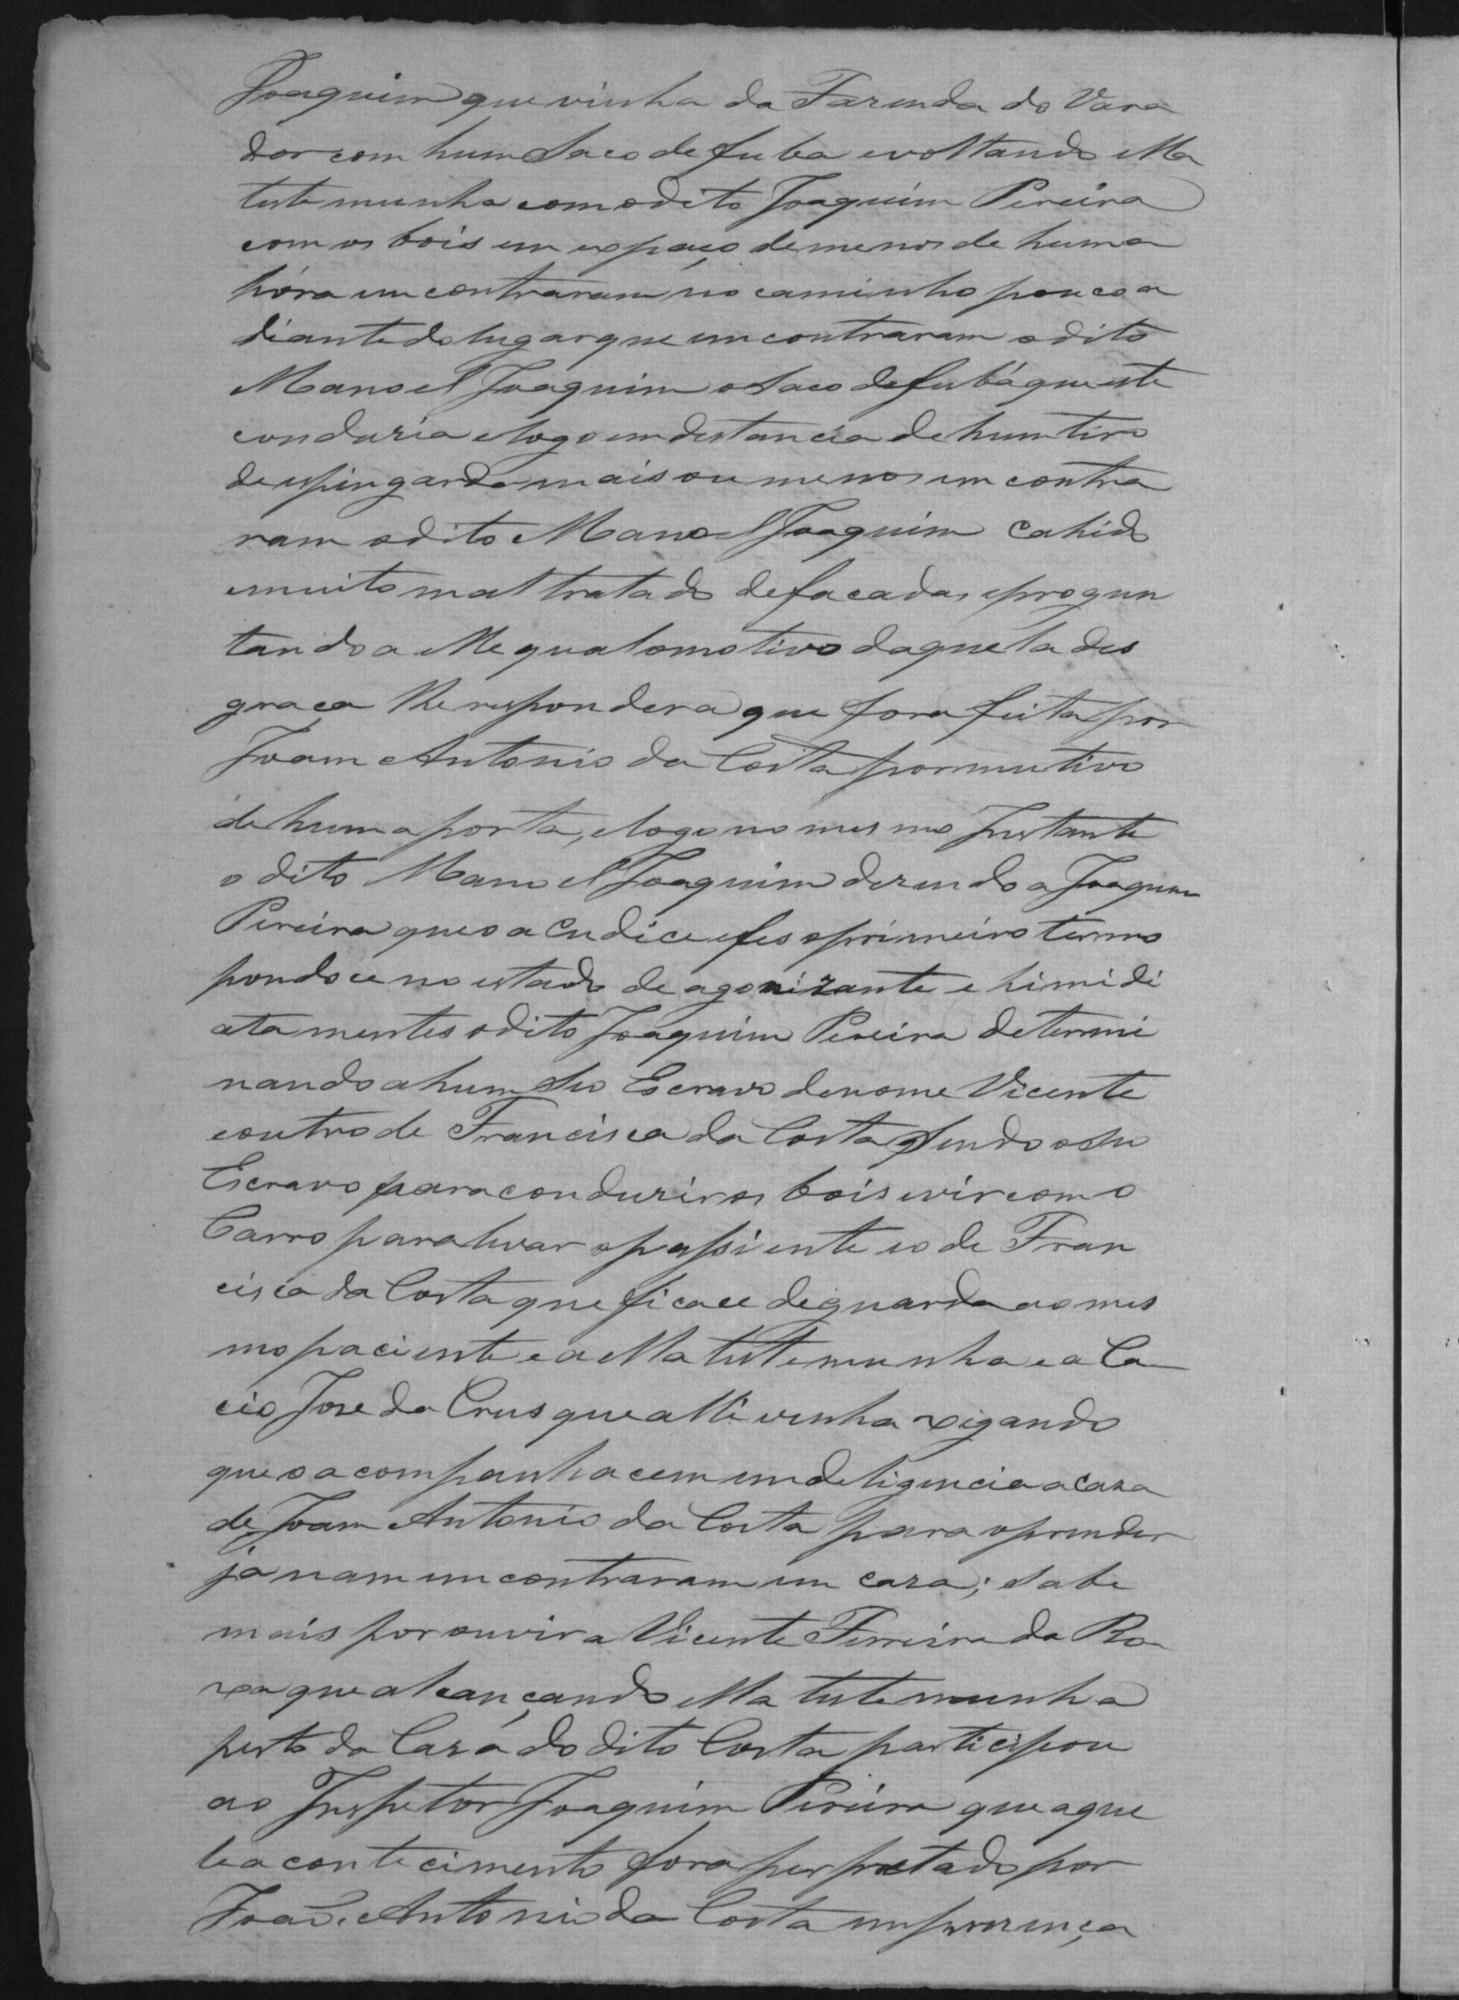 Joaquim que vinha da Fazenda do Vara
dor com hum Saco de fuba e voltando ella
testemunha com o dito Joaquim Pereira
com os bois em espaço de menos de huma
hóra emcontraram no caminho pouco a
diante do lugar que emcontraram o dito
Manoel Joaquim o Saco de fubá que este
conduzia e logo em destancia de hum tiro
de espingarda mais ou menos emcontra
ram o dito Manoel Joaquim Cahido
e muito mal tratado de facadas e progun
tando a elle qual o motivo daquela des
graça lhe respondera que fora feita por
Joam Antonio da Costa por mutivo
de huma porta, e logo no mesmo Instante
o dito Manoel Joaquim dizendo a Joaquim
Pereira que o a Cudice e fes o primeiro termo
pondoce no estado de agonizante e himidi
atamentes o dito Joaquim Pereira determi
nando a hum Seu Escravo de nome Vicente
e outro de Francisca da Costa Sendo o Seu
Escravo para conduzir os bois e vir com o
Carro para levar o passiente e o de Fran
cisca da Costa que ficace de guarda ao mes
mo paciente e a ella testemunha e a Ca
cio Jose da Crus que alli vinha xegando
que o acompanhacem em deligencia a caza
de Joam Antonio da Costa para o prender
ja nam emcontraram em caza; Sabe
mais por ouvir a Vicente Ferreira da Ro
xa que alcançando ella testemunha
perto da Caza do dito Costa participou
ao Inspetor Joaquim Pereira que aque
le acontecimento fora perpretado por
Joaõ Antonio da Costa em prezença